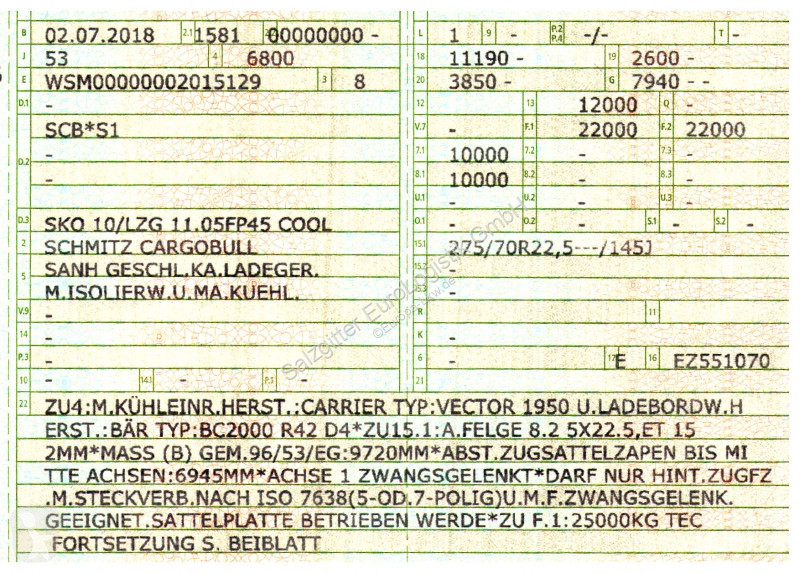 B 02.07.2018 2.1 1581 00000000 - L 1 9 - P.2 P.4 -/- T -
J 53 4 6800 18 11190 - 19 2600 -
E WSM00000002015129 3 8 20 3850 - G 7940 - -
D.1 - 12 13 12000 Q -
SCB*S1 V.7 - F.1 22000 F.2 22000
D.2 - 7.1 10000 7.2 - 7.3 -
- 8.1 10000 8.2 - 8.3 -
U.1 - U.2 - U.3 -
D.3 SKO 10/LZG 11.05FP45 COOL O.1 - O.2 - S.1 - S.2 -
2 SCHMITZ CARGOBULL 15.1 275/70R22,5---/145J
5 SANH GESCHL.KA.LADEGER. 15.2 -
M.ISOLIERW.U.MA.KUEHL. 15.3 -
V.9 - R 11
14 - K -
P.3 - 6 - 17 E 16 EZ551070
10 - 14.1 - P.5 - 21
22 ZU4:M.KÜHLEINR.HERST.:CARRIER TYP:VECTOR 1950 U.LADEBORDW.H
ERST.:BÄR TYP:BC2000 R42 D4*ZU15.1:A.FELGE 8.2 5X22.5,ET 15
2MM*MASS (B) GEM.96/53/EG:9720MM*ABST.ZUGSATTELZAPEN BIS MI
TTE ACHSEN:6945MM*ACHSE 1 ZWANGSGELENKT*DARF NUR HINT.ZUGFZ
.M.STECKVERB.NACH ISO 7638(5-OD.7-POLIG)U.M.F.ZWANGSGELENK.
GEEIGNET.SATTELPLATTE BETRIEBEN WERDE*ZU F.1:25000KG TEC
FORTSETZUNG S. BEIBLATT
Salzgitter EuroLogistik GmbH
©Europa-LKW.de